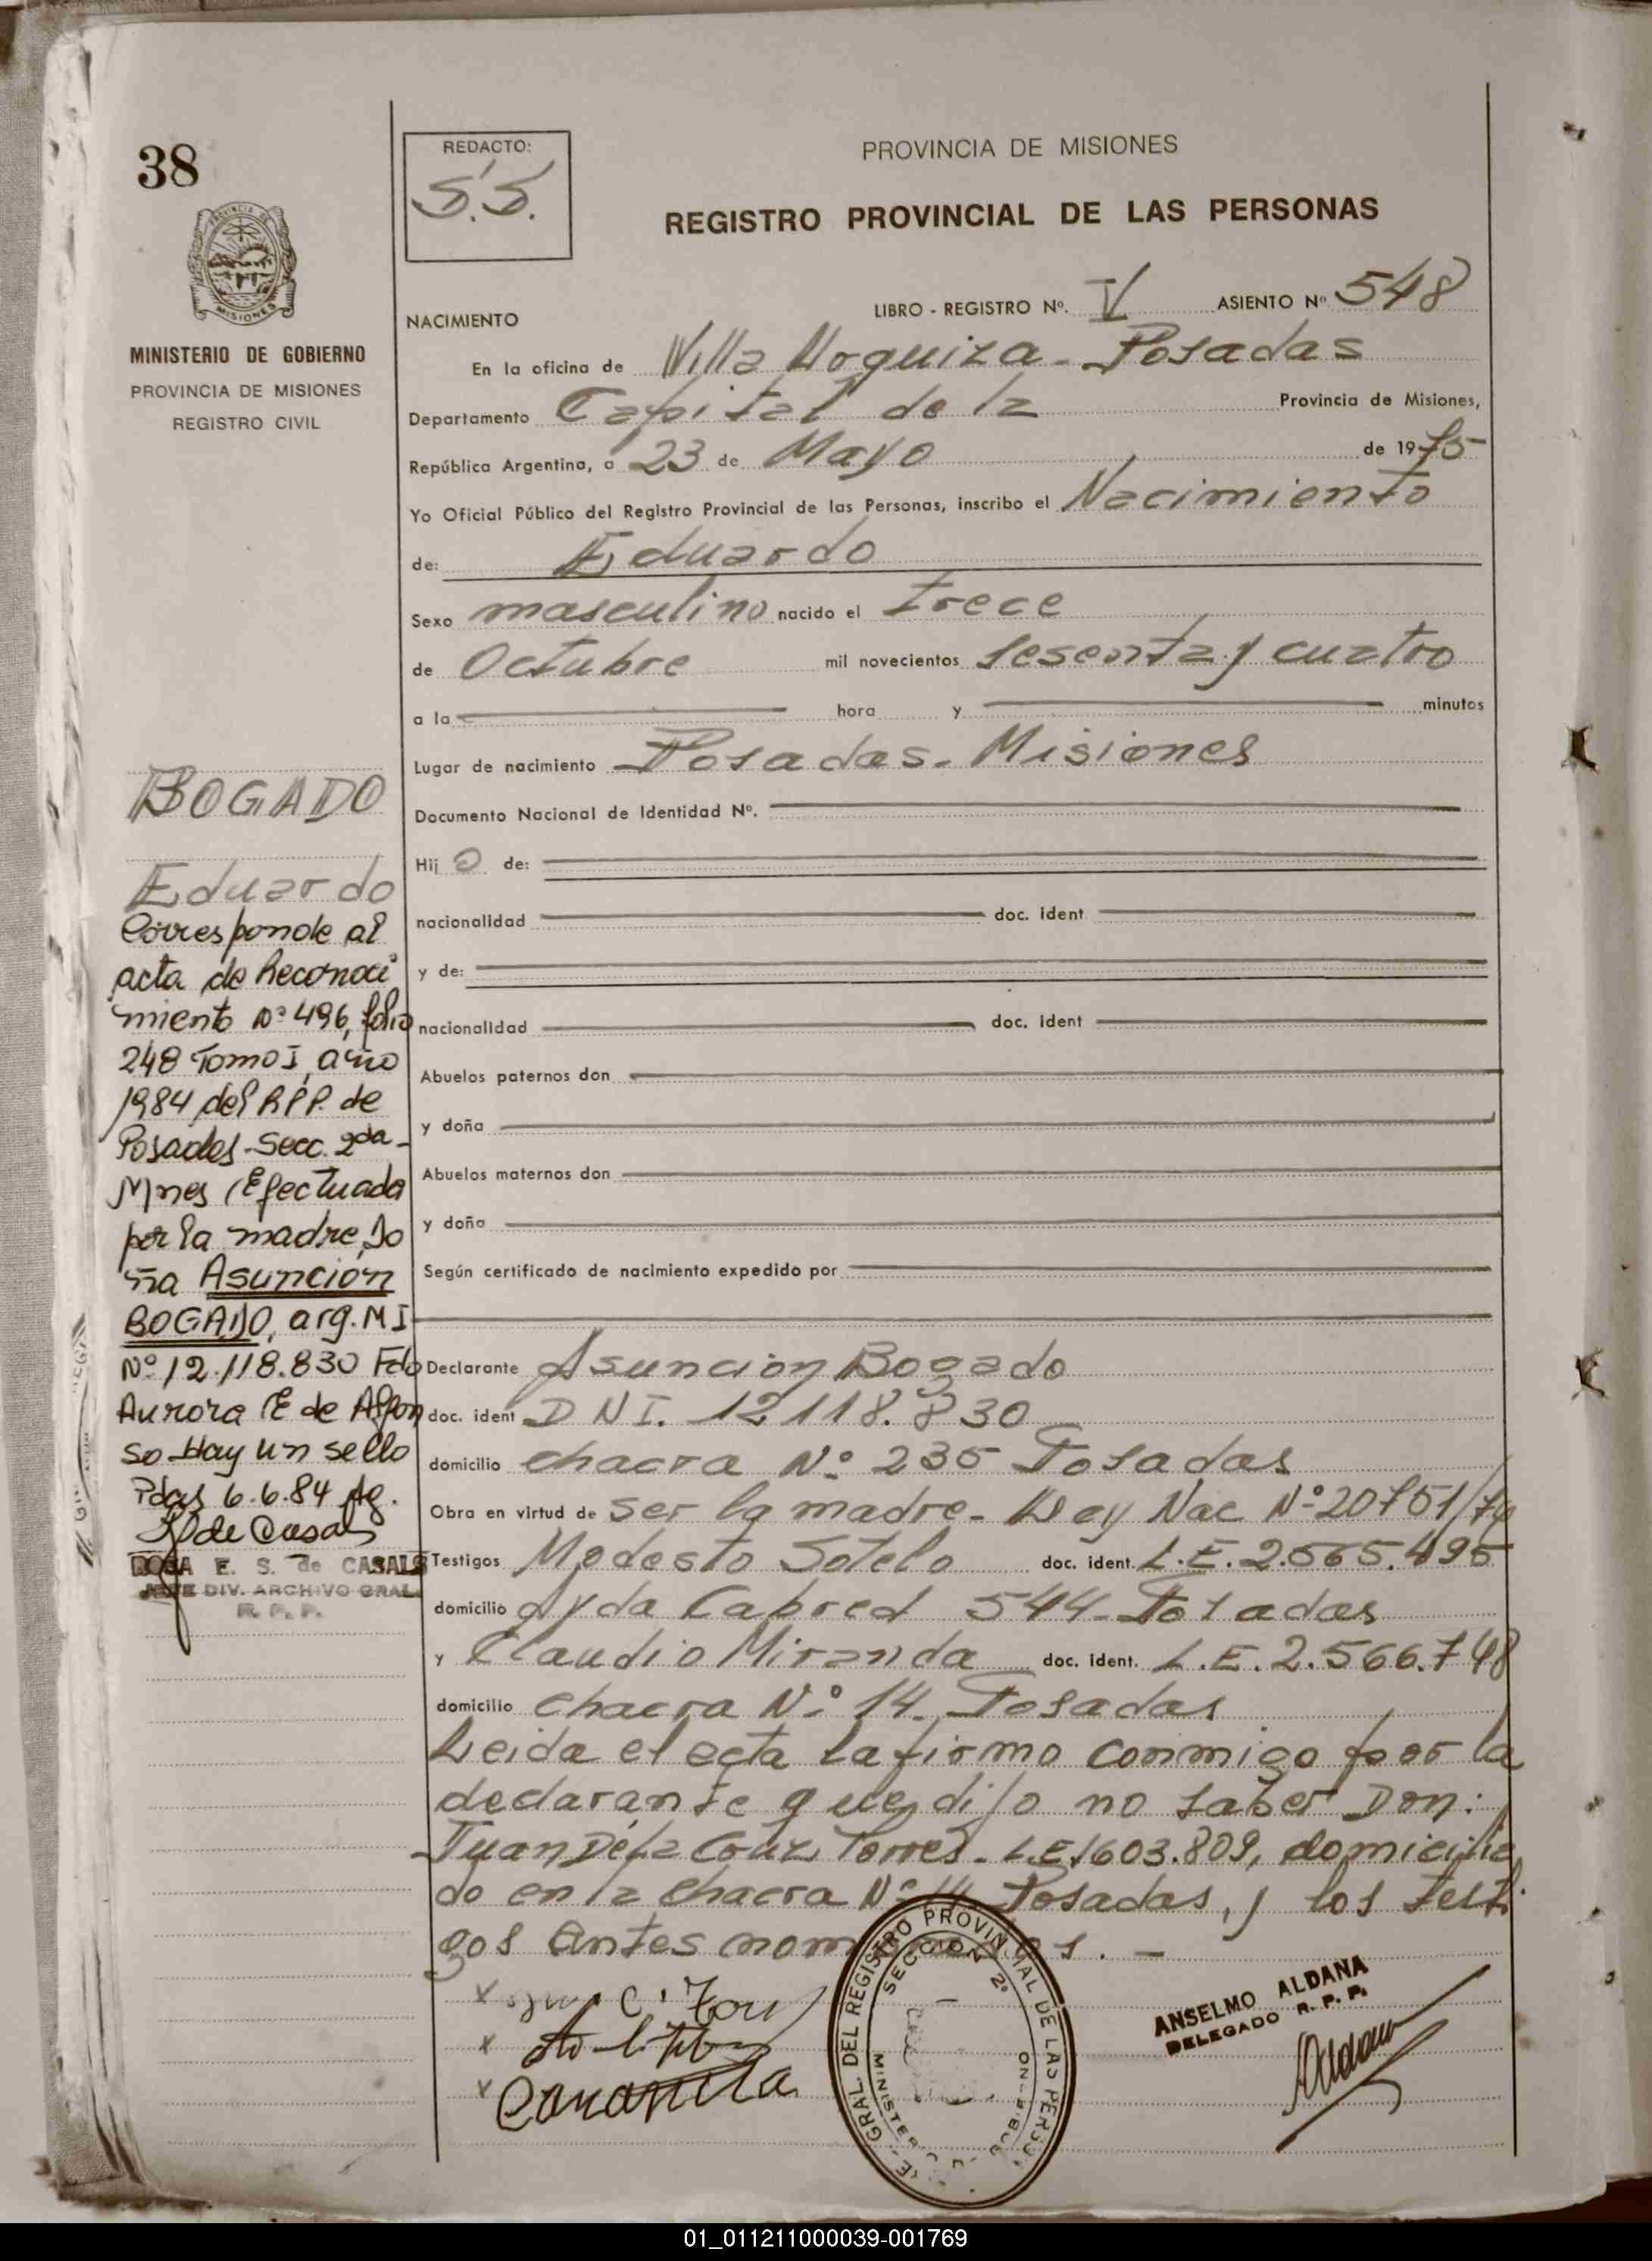 38
REDACTO:
S.S.
PROVINCIA DE MISIONES
REGISTRO PROVINCIAL DE LAS PERSONAS
PROVINCIA DE
MISIONES
MINISTERIO DE GOBIERNO
PROVINCIA DE MISIONES
REGISTRO CIVIL
NACIMIENTO
LIBRO - REGISTRO Nº. V ASIENTO Nº 548
En la oficina de Villa Urquiza - Posadas
Departamento Capital de la Provincia de Misiones,
República Argentina, a 23 de Mayo de 1975
Yo Oficial Público del Registro Provincial de las Personas, inscribo el Nacimiento
de: Eduardo
Sexo masculino nacido el trece
de Octubre mil novecientos sesenta y cuatro
a la hora y minutos
Lugar de nacimiento Posadas. Misiones
Documento Nacional de Identidad Nº.
Hij o de:
nacionalidad doc. ident
y de:
nacionalidad doc. ident
Abuelos paternos don
y doña
Abuelos maternos don
y doña
Según certificado de nacimiento expedido por
Declarante Asuncion Bogado
doc. ident DNI. 12118.830
domicilio chacra Nº 235 Posadas
Obra en virtud de ser la madre - Ley Nac Nº 20751/74
Testigos Modesto Sotelo doc. ident. L.E. 2.565.495
domicilio Ayda Cabred 544 - Posadas
y Claudio Miranda doc. ident. L.E. 2.566.748
domicilio chacra Nº 14. Posadas
Leida el acta la firmo conmigo por la
declarante que dijo no saber Don:
Juan De La Cruz Torres - L.E. 1603.809, domicilia
do en la chacra Nº 14 Posadas, y los testi
gos antes nombrados. -
BOGADO
Eduardo
Corresponde al
acta de Reconoci
miento Nº 496, folio
248 Tomo I, año
1984 del R.P.P. de
Posadas - Secc. 2da -
Mnes (Efectuada
por la madre Do
ña Asunción
BOGADO, arg. M I
Nº 12.118.830 Fdo
Aurora E de Alfon
so Hay un sello
Pdas 6.6.84 Ag.
de Casals
ROSA E. S. de CASALS
JEFE DIV. ARCHIVO GRAL.
R. P. P.
GRAL. DEL REGISTRO PROVINCIAL DE LAS PERSO
SECCION 2º
ANSELMO ALDANA
DELEGADO R. P. P.
Aldana
01_011211000039-001769